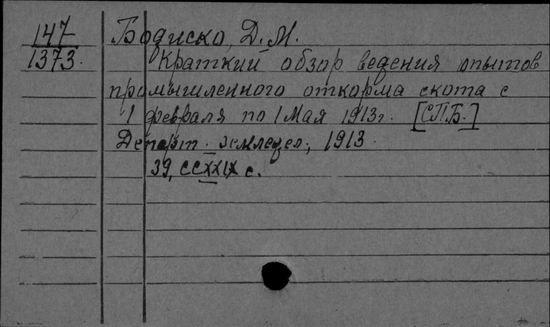 147 Бодиско, Д. М.
1373. Краткий обзор ведения опытов
промышленного откорма скота с
1 февраля по 1 Мая 1913г. [СПБ.]
Департ. земледел., 1913.
39, CCXXIX с.